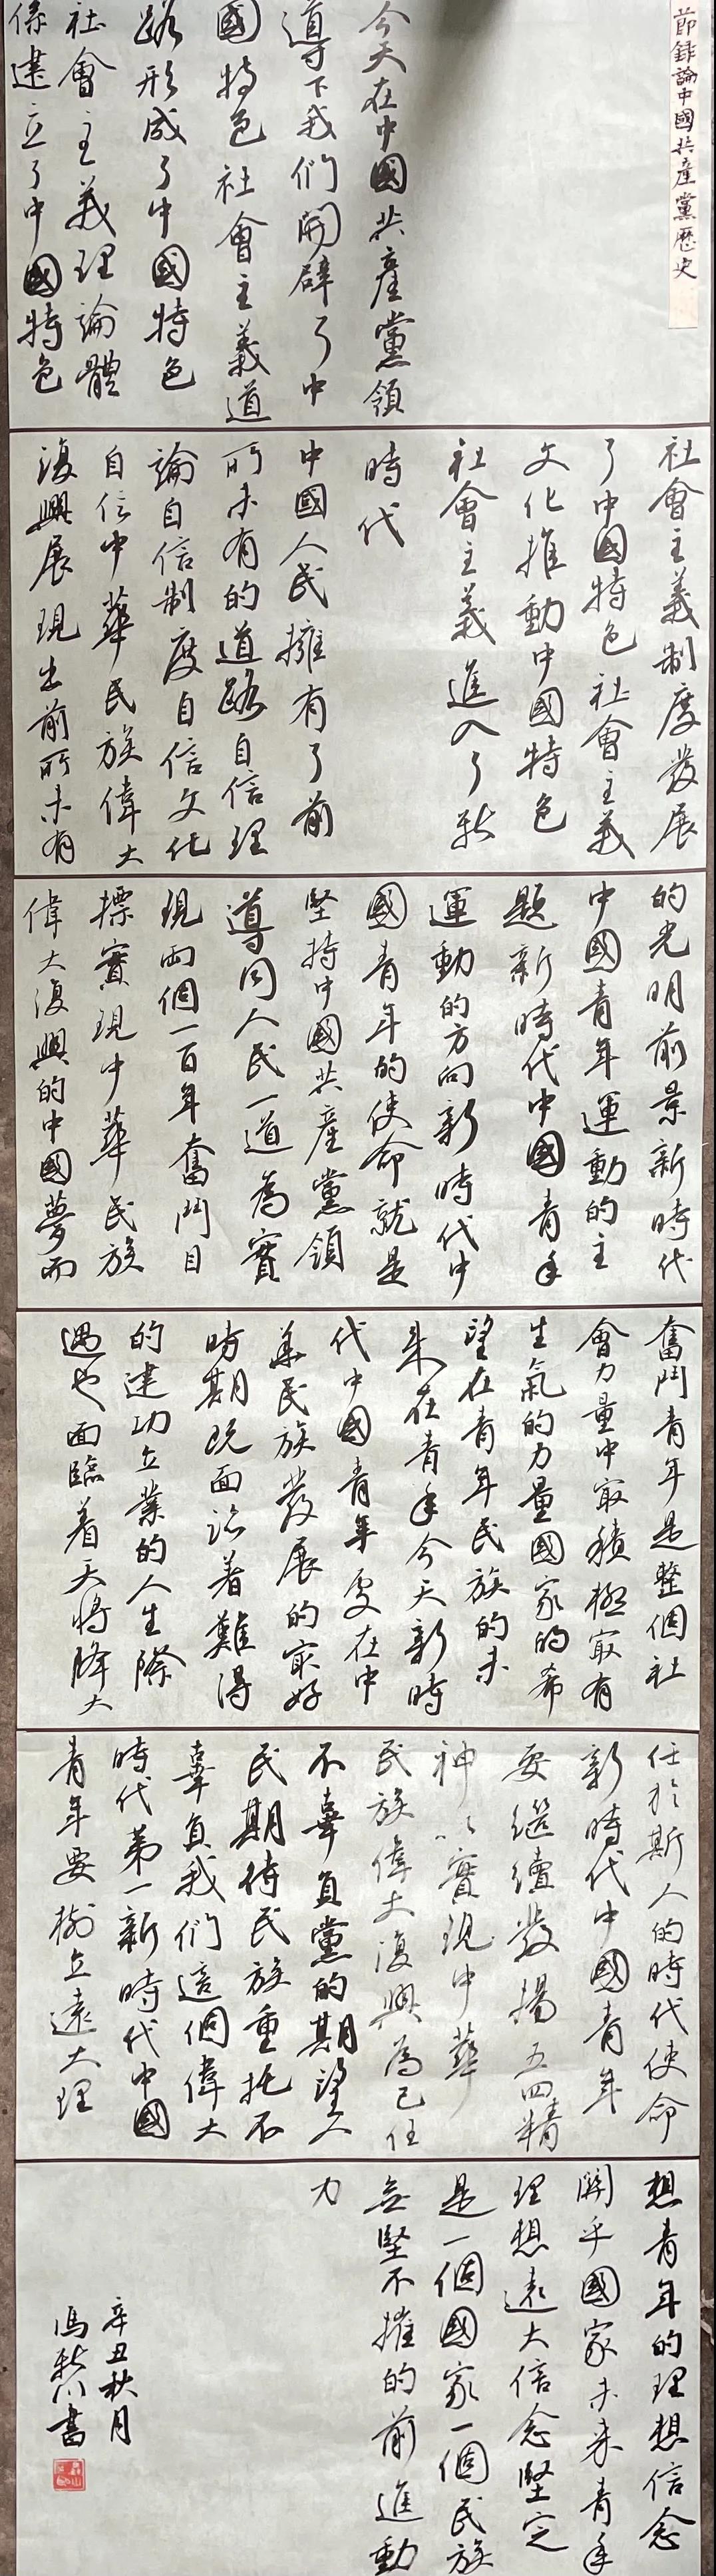 節録論中國共產黨歷史
今天在中國共產黨領
導下我们開辟了中
國特色社會主義道
路形成了中國特色
社會主義理論體
係建立了中國特色
社會主義制度發展
了中國特色社會主義
文化推動中國特色
社會主義進入了新
時代
中國人民擁有了前
所未有的道路自信理
論自信制度自信文化
自信中華民族偉大
復興展現出前所未有
的光明前景新時代
中國青年運動的主
題新時代中國青年
運動的方向新時代中
國青年的使命就是
堅持中國共產黨領
導同人民一道為實
現两個一百年奮鬥目
標實現中華民族
偉大復興的中國夢而
奮鬥青年是整個社
會力量中最積極最有
生氣的力量國家的希
望在青年民族的未
来在青年今天新時
代中國青年處在中
華民族發展的最好
時期既面臨着難得
的建功立業的人生際
遇也面臨着天將降大
任於斯人的時代使命
新時代中國青年
要繼續發揚五四精
神以實現中華
民族偉大復興為己任
不辜負黨的期望人
民期待民族重托不
辜負我们這個偉大
時代第一新時代中國
青年要樹立遠大理
想青年的理想信念
關乎國家未来青年
理想遠大信念堅定
是一個國家一個民族
無堅不摧的前進動
力
辛丑秋月
馮新川書